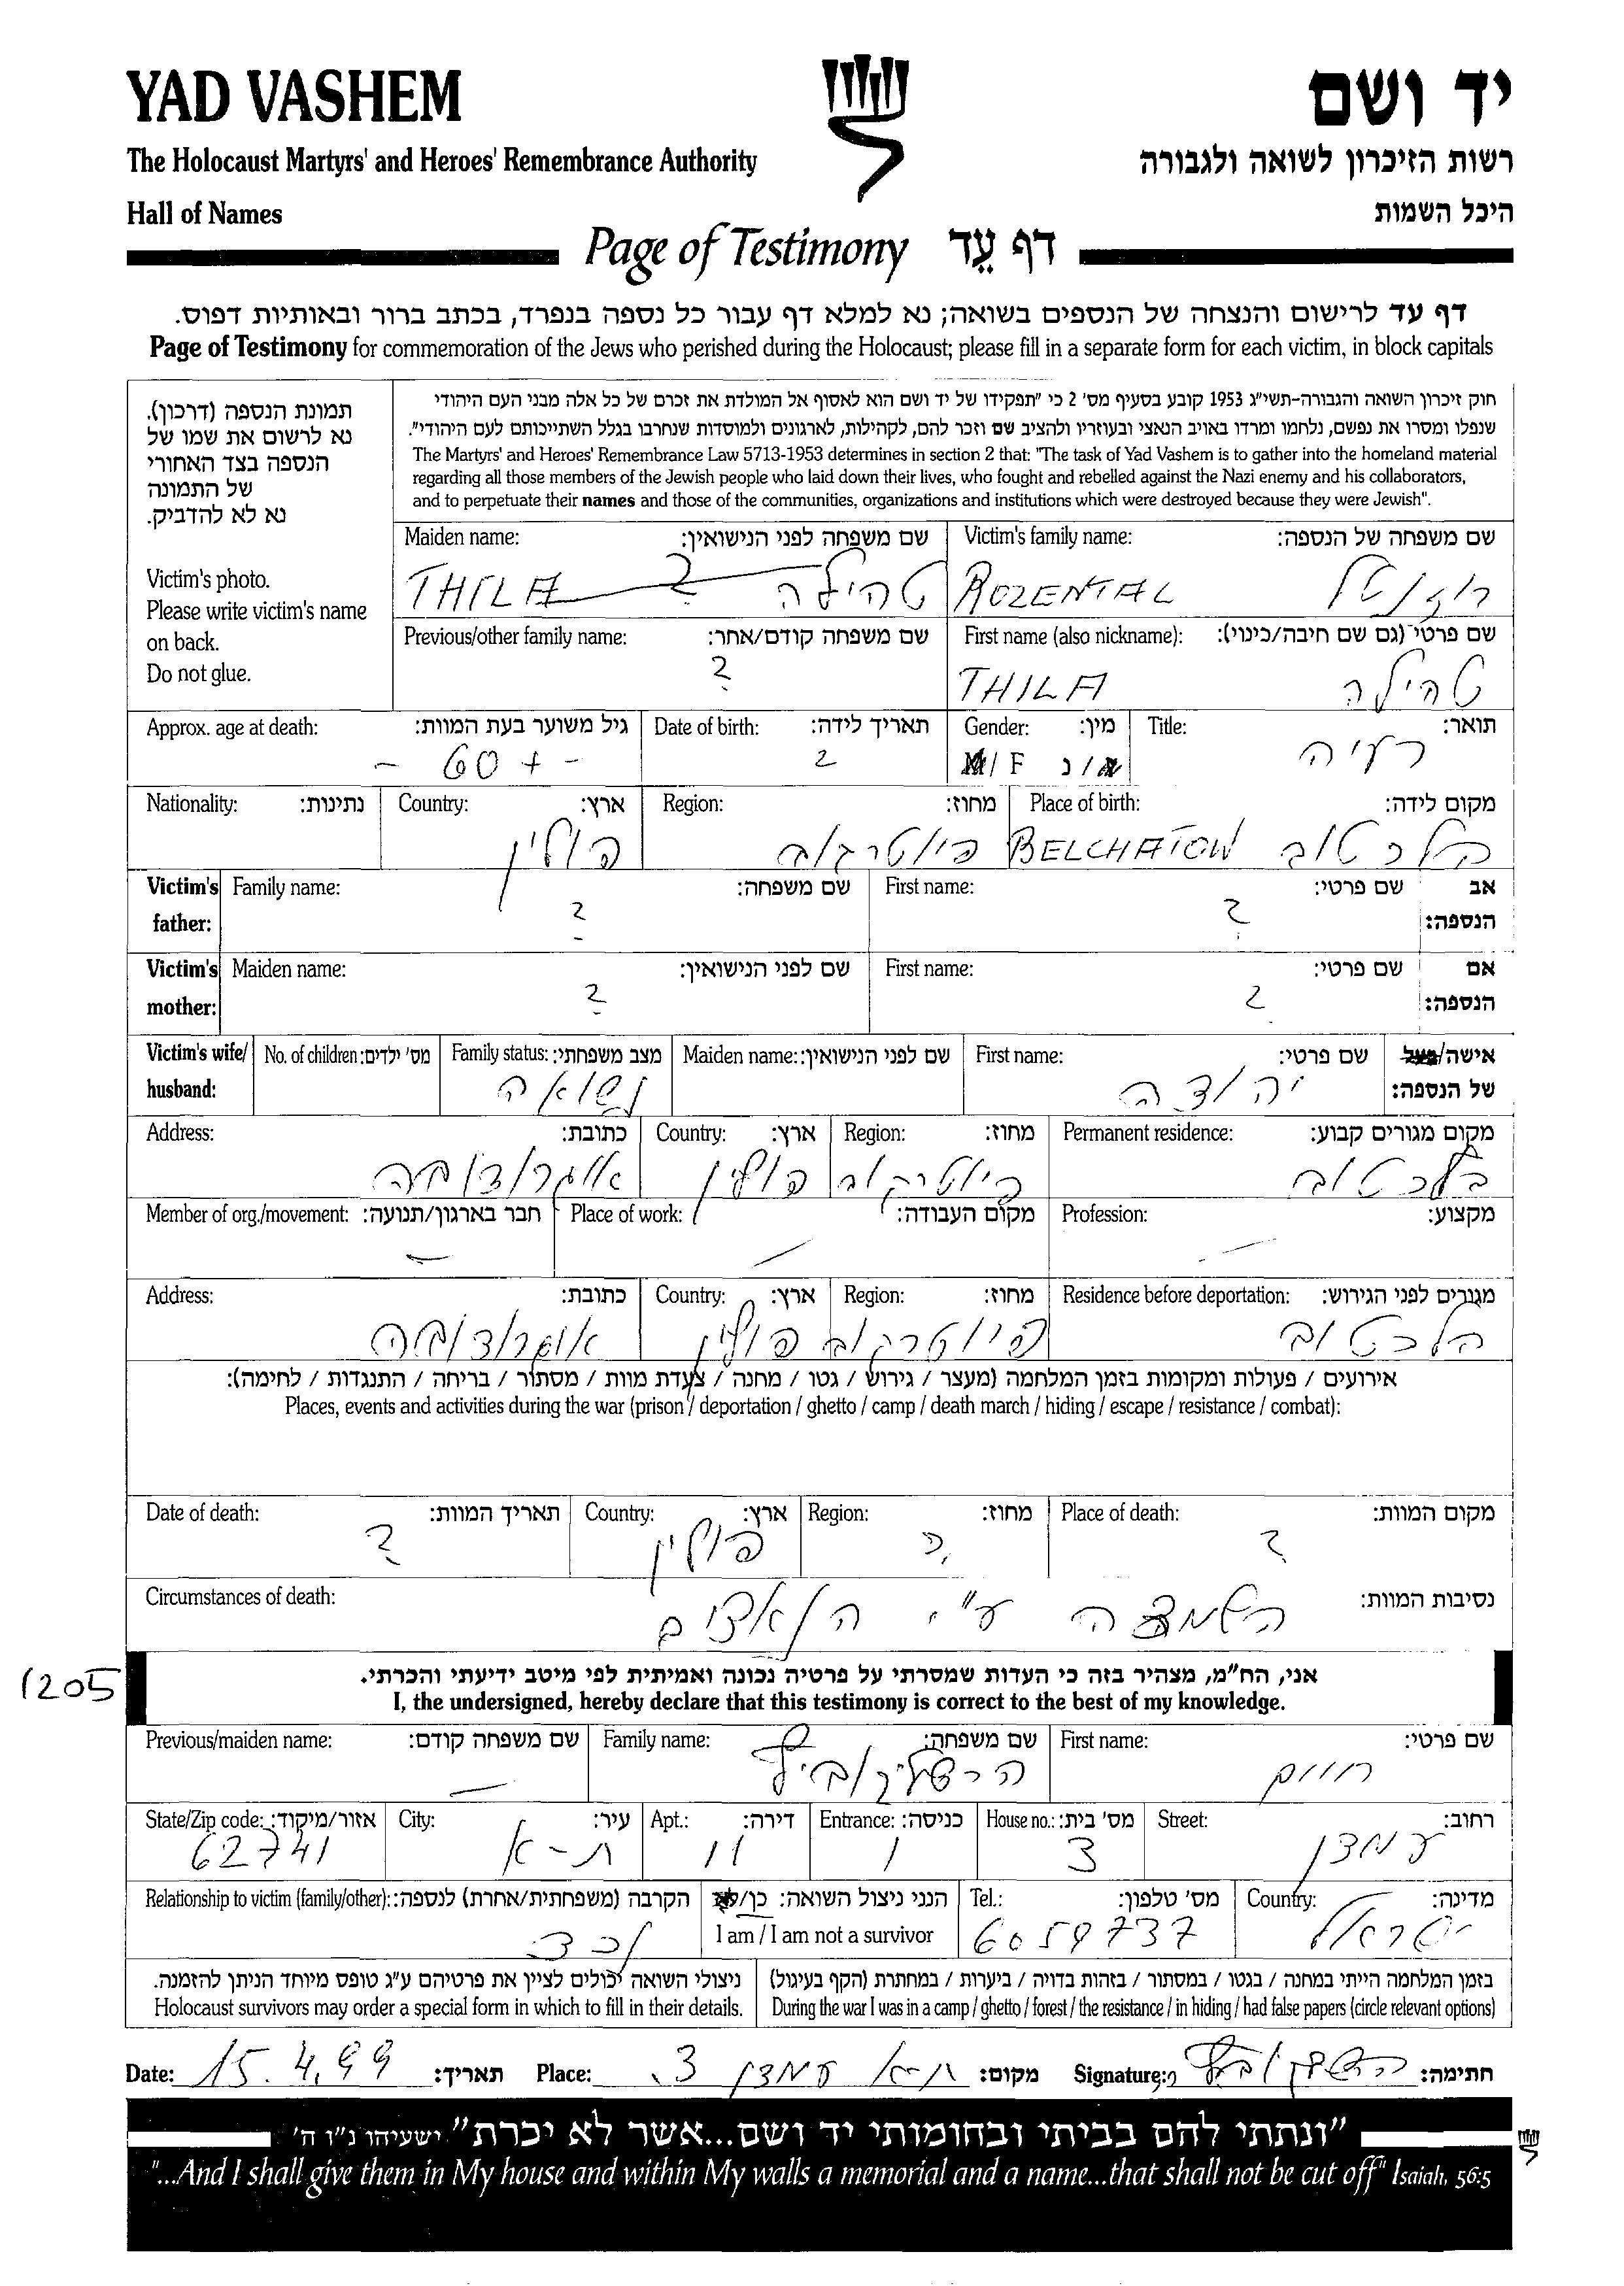 YAD VASHEM
יד ושם
The Holocaust Martyrs' and Heroes' Remembrance Authority
רשות הזיכרון לשואה ולגבורה
Hall of Names
היכל השמות
Page of Testimony דף עֵד
דף עד לרישום והנצחה של הנספים בשואה; נא למלא דף עבור כל נספה בנפרד, בכתב ברור ובאותיות דפוס.
Page of Testimony for commemoration of the Jews who perished during the Holocaust; please fill in a separate form for each victim, in block capitals
תמונת הנספה (דרכון).
נא לרשום את שמו של
הנספה בצד האחורי
של התמונה
נא לא להדביק.
Victim's photo.
Please write victim's name
on back.
Do not glue.
חוק זיכרון השואה והגבורה-תשי"ג 1953 קובע בסעיף מס' 2 כי "תפקידו של יד ושם הוא לאסוף אל המולדת את זכרם של כל אלה מבני העם היהודי
שנפלו ומסרו את נפשם, נלחמו ומרדו באויב הנאצי ובעוזריו ולהציב שם וזכר להם, לקהילות, לארגונים ולמוסדות שנחרבו בגלל השתייכותם לעם היהודי".
The Martyrs' and Heroes' Remembrance Law 5713-1953 determines in section 2 that: "The task of Yad Vashem is to gather into the homeland material
regarding all those members of the Jewish people who laid down their lives, who fought and rebelled against the Nazi enemy and his collaborators,
and to perpetuate their names and those of the communities, organizations and institutions which were destroyed because they were Jewish".
Victim's family name: שם משפחה של הנספה:
ROZENTAL רוזנטל
Maiden name: שם משפחה לפני הנישואין:
THILA ? טהילה
First name (also nickname): שם פרטי (גם שם חיבה/כינוי):
THILA טהילה
Previous/other family name: שם משפחה קודם/אחר:
?
Title: תואר:
רעיה
Gender: מין:
M/F ז/נ
Date of birth: תאריך לידה:
?
Approx. age at death: גיל משוער בעת המוות:
- 60+ -
Place of birth: מקום לידה:
BELCHATOW בלכטוב
Region: מחוז:
פיוטרקוב
Country: ארץ:
פולין
Nationality: נתינות:
Victim's father: אב הנספה:
First name: שם פרטי:
?
Family name: שם משפחה:
?
Victim's mother: אם הנספה:
First name: שם פרטי:
?
Maiden name: שם לפני הנישואין:
?
Victim's wife/husband: אישה/בעל של הנספה:
First name: שם פרטי:
יהודה
Maiden name: שם לפני הנישואין:
Family status: מצב משפחתי:
נשואה
No. of children: מס' ילדים:
Permanent residence: מקום מגורים קבוע:
בלכטוב
Region: מחוז:
פיוטרקוב
Country: ארץ:
פולין
Address: כתובת:
אוגרודובה
Profession: מקצוע:
—
Place of work: מקום העבודה:
—
Member of org./movement: חבר בארגון/תנועה:
—
Residence before deportation: מגורים לפני הגירוש:
בלכטוב
Region: מחוז:
פיוטרקוב
Country: ארץ:
פולין
Address: כתובת:
אוגרודובה
אירועים / פעולות ומקומות בזמן המלחמה (מעצר / גירוש / גטו / מחנה / צעדת מוות / מסתור / בריחה / התנגדות / לחימה):
Places, events and activities during the war (prison / deportation / ghetto / camp / death march / hiding / escape / resistance / combat):
Place of death: מקום המוות:
?
Region: מחוז:
?
Country: ארץ:
פולין
Date of death: תאריך המוות:
?
Circumstances of death: נסיבות המוות:
השמדה ע"י הנאצים
1205
אני, הח"מ, מצהיר בזה כי העדות שמסרתי על פרטיה נכונה ואמיתית לפי מיטב ידיעתי והכרתי.
I, the undersigned, hereby declare that this testimony is correct to the best of my knowledge.
First name: שם פרטי:
חיים
Family name: שם משפחה:
הרשליקוביץ
Previous/maiden name: שם משפחה קודם:
—
Street: רחוב:
עמדן
House no.: מס' בית:
3
Entrance: כניסה:
1
Apt.: דירה:
11
City: עיר:
ת-א
State/Zip code: אזור/מיקוד:
62741
Country: מדינה:
ישראל
Tel.: מס' טלפון:
6059737
הנני ניצול השואה: כן/לא
I am / I am not a survivor
Relationship to victim (family/other): הקרבה (משפחתית/אחרת) לנספה:
נכד
בזמן המלחמה הייתי במחנה / בגטו / במסתור / בזהות בדויה / ביערות / במחתרת (הקף בעיגול)
During the war I was in a camp / ghetto / forest / the resistance / in hiding / had false papers (circle relevant options)
ניצולי השואה יכולים לציין את פרטיהם ע"ג טופס מיוחד הניתן להזמנה.
Holocaust survivors may order a special form in which to fill in their details.
Date: 15.4.99 תאריך: Place: ת-א עמדן 3. מקום: Signature: חתימה:
"ונתתי להם בביתי ובחומותי יד ושם...אשר לא יכרת" ישעיהו נ"ו ה'
"...And I shall give them in My house and within My walls a memorial and a name...that shall not be cut off" Isaiah, 56:5